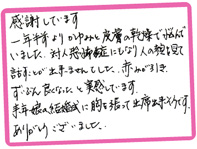 感謝しています
一年半前よりかゆみと皮膚の乾燥で悩んで
いました。対人恐怖症にもなり人の顔を見て
話すことが出来ませんでした。赤みが引き
ずいぶん良くなったと実感しています。
来年娘の結婚式に胸を張って出席出来そうです。
ありがとうございました。